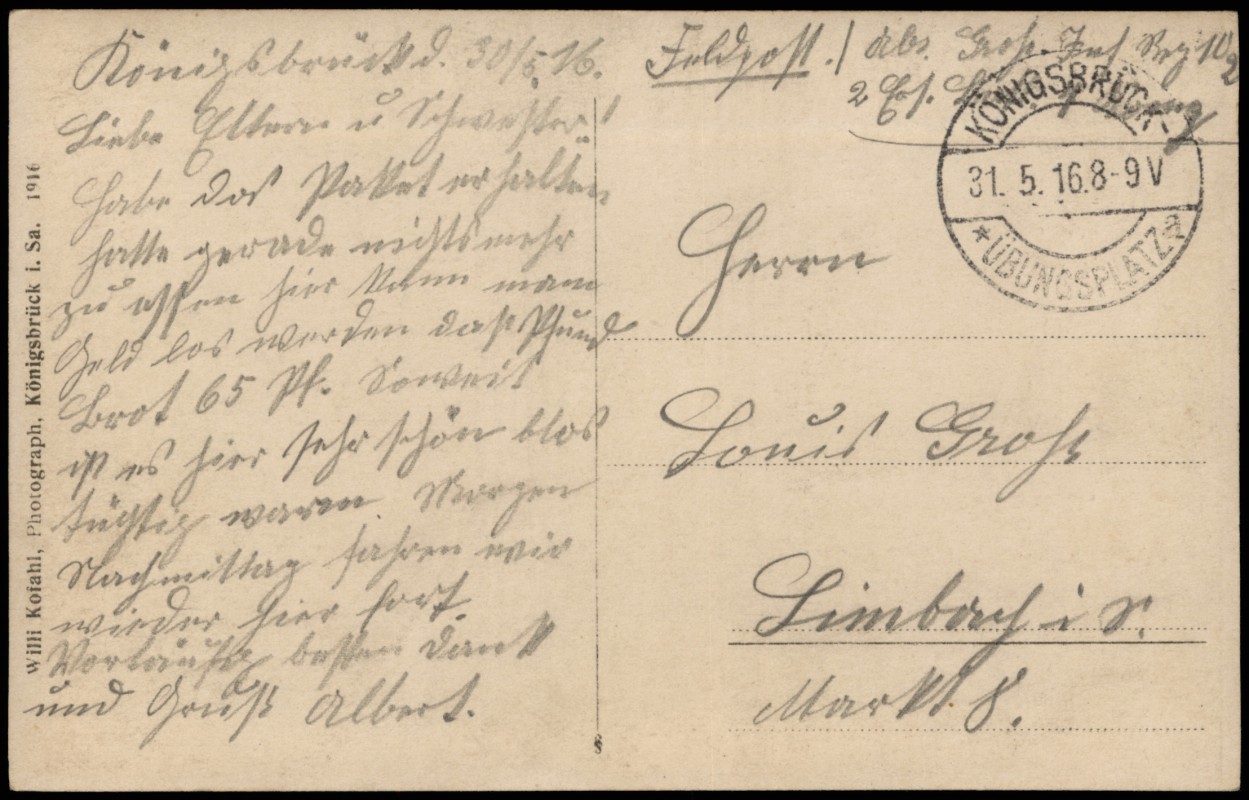 Königsbrück d. 30/5.16.
Liebe Eltern u Schwester!
habe das Paket erhalten
hatte gerade nichts mehr
zu essen hier kann man
Geld los werden das Pfund
Brot 65 Pf. Soweit
ist es hier sehr schön blos
tüchtig warm. Morgen
Nachmittag fahren wir
wieder hier fort.
Vorläufig besten Dank
und Gruß Albert.
Feldpost. / Abs. Groh. Inf Reg 102
2 Ers.
KÖNIGSBRÜCK
31. 5. 16. 8-9 V
* ÜBUNGSPLATZ a
Herrn
Louis Groh
Limbach i S.
Markt 8.
Willi Kofahl, Photograph, Königsbrück i. Sa. 1916